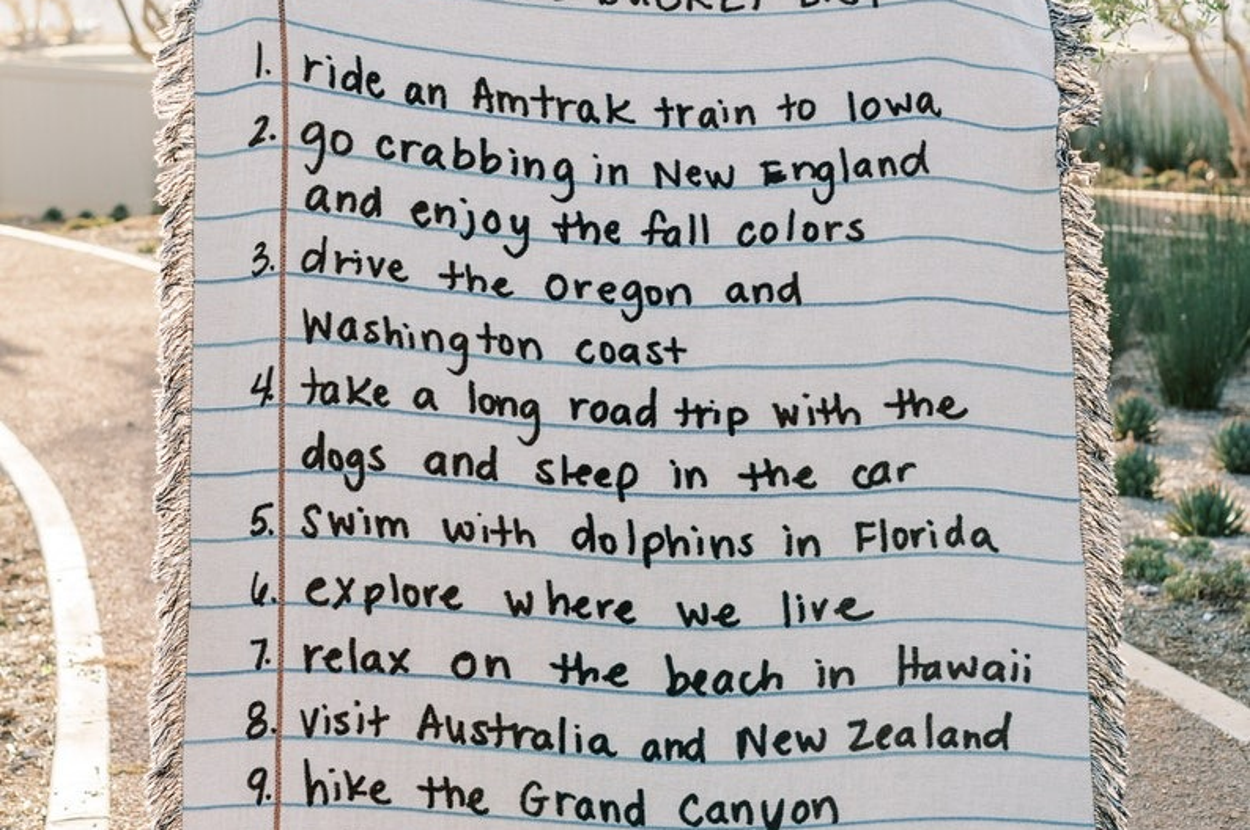 BUCKET LIST
1. ride an Amtrak train to Iowa
2. go crabbing in New England
and enjoy the fall colors
3. drive the Oregon and
Washington coast
4. take a long road trip with the
dogs and sleep in the car
5. Swim with dolphins in Florida
6. explore where we live
7. relax on the beach in Hawaii
8. visit Australia and New Zealand
9. hike the Grand Canyon